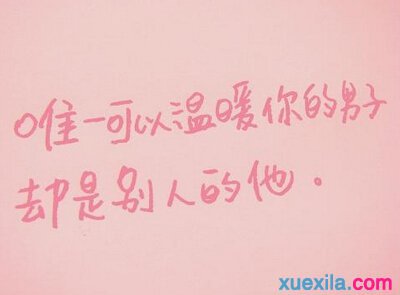 唯一可以温暖你的男子
却是别人的他.
xuexila.com